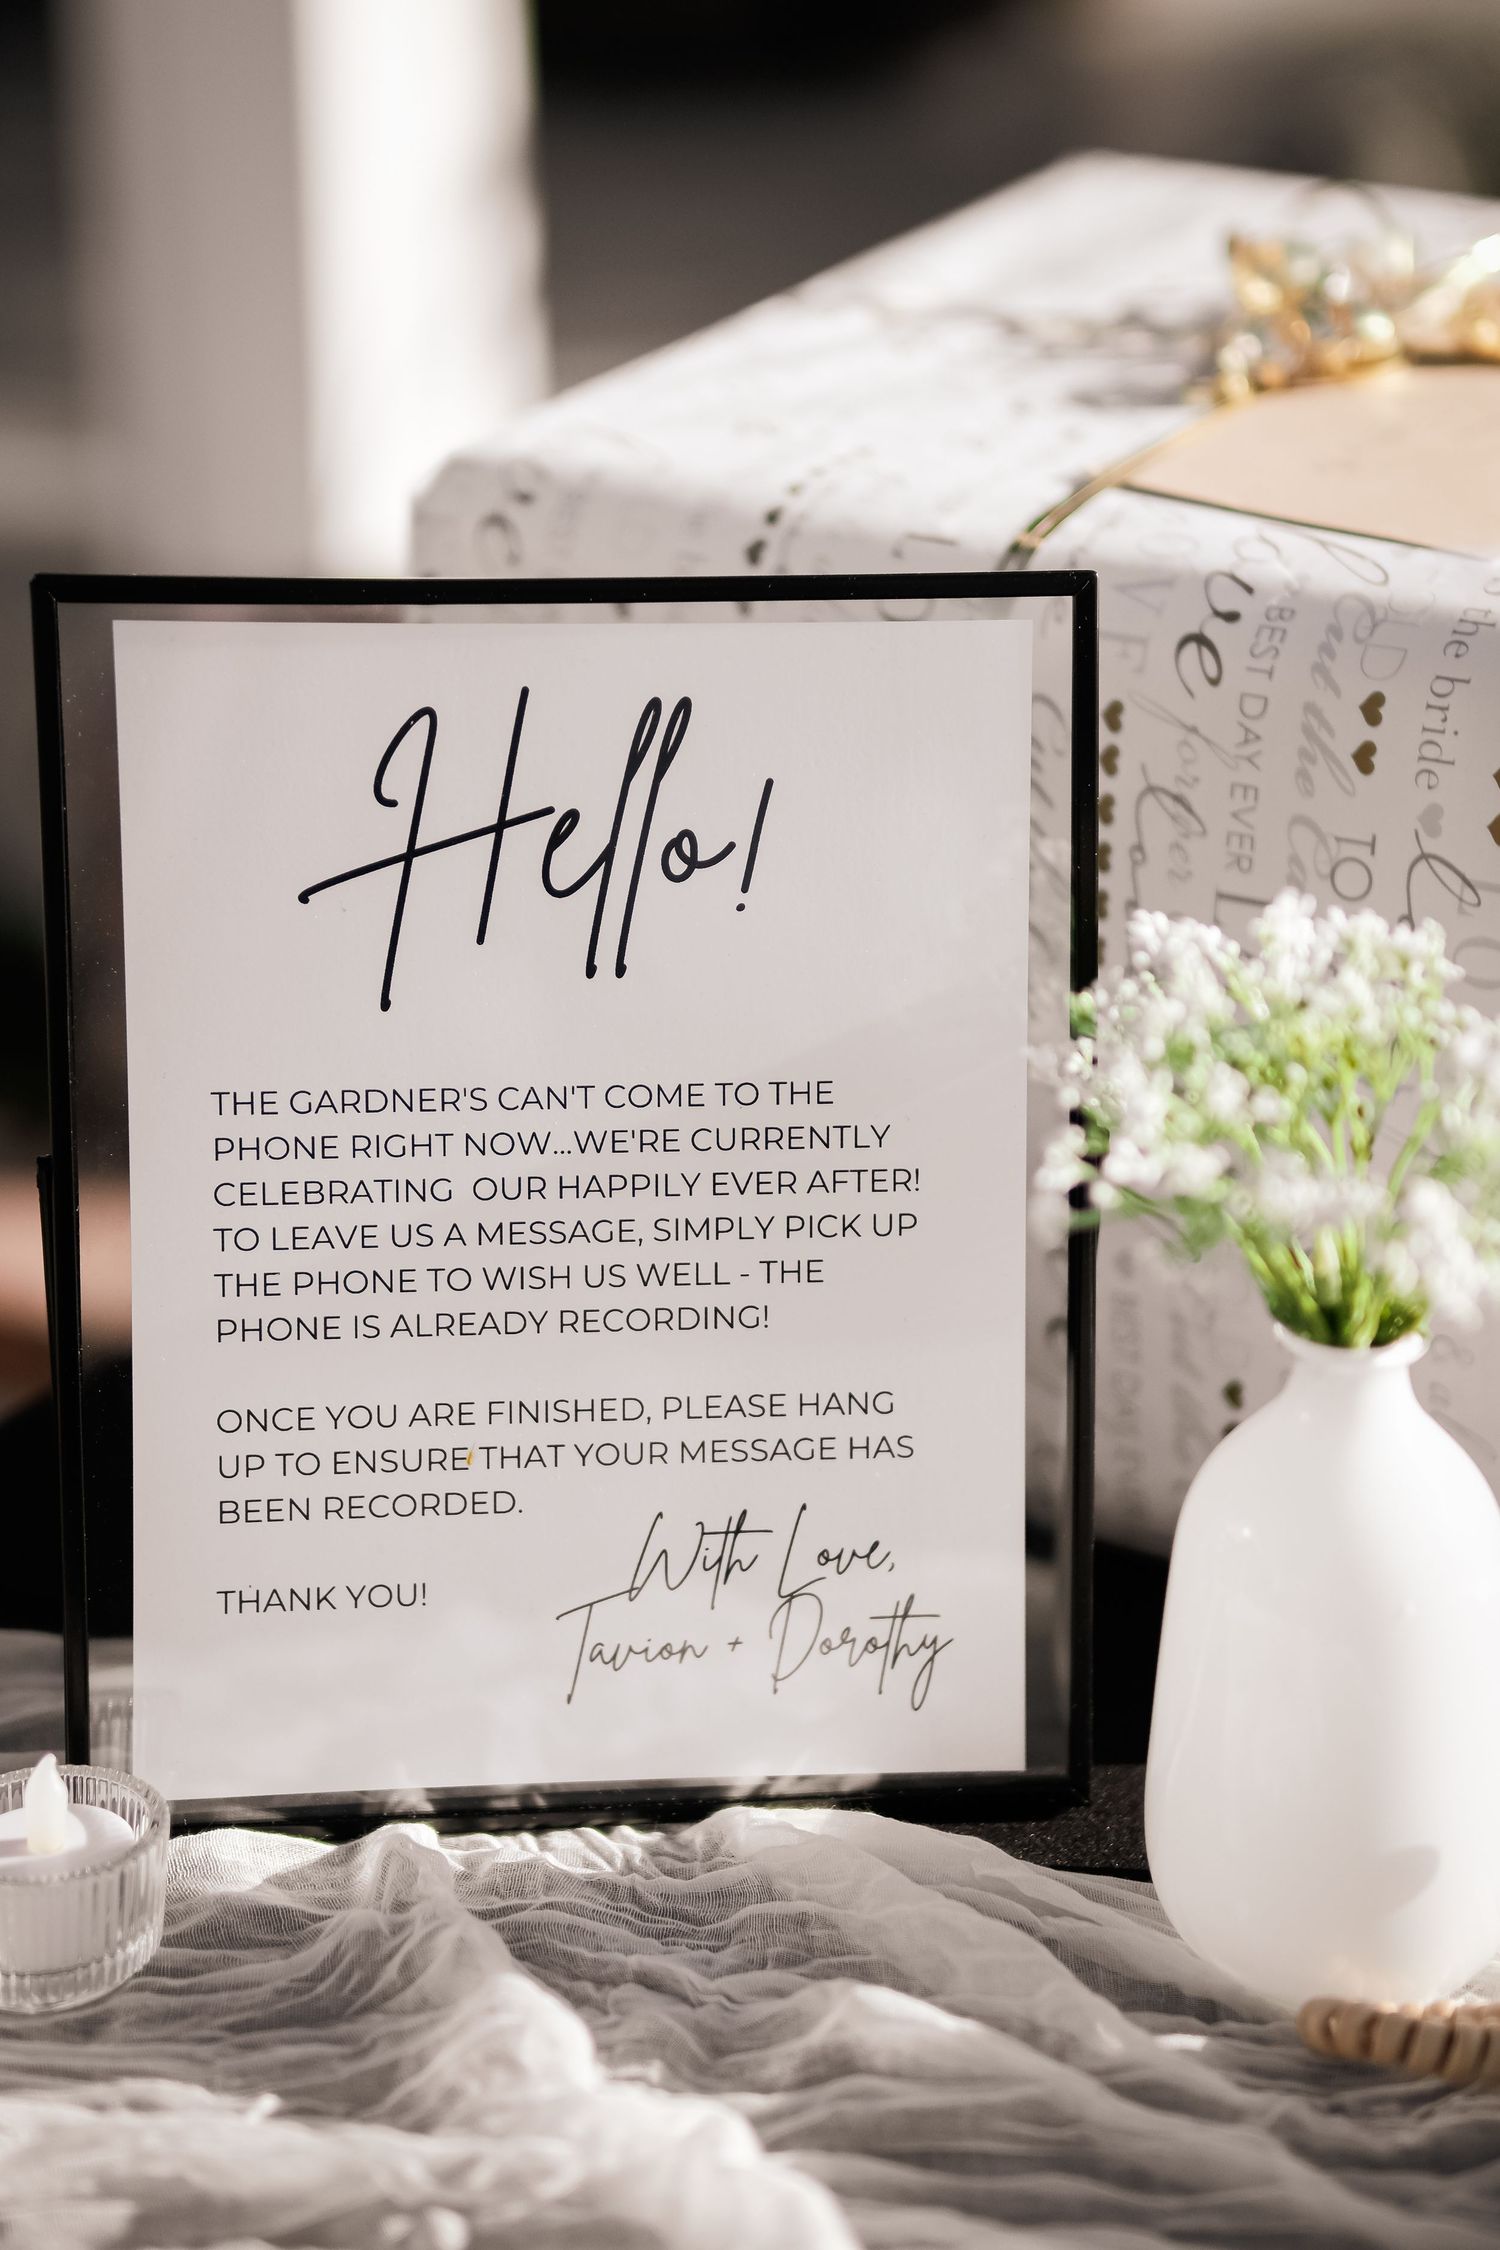 Hello!
THE GARDNER'S CAN'T COME TO THE
PHONE RIGHT NOW...WE'RE CURRENTLY
CELEBRATING OUR HAPPILY EVER AFTER!
TO LEAVE US A MESSAGE, SIMPLY PICK UP
THE PHONE TO WISH US WELL - THE
PHONE IS ALREADY RECORDING!
ONCE YOU ARE FINISHED, PLEASE HANG
UP TO ENSURE THAT YOUR MESSAGE HAS
BEEN RECORDED.
THANK YOU!
With Love,
Tavion + Dorothy
LOVE
forever
BEST DAY EVER
TO
the bride
BEST DAY